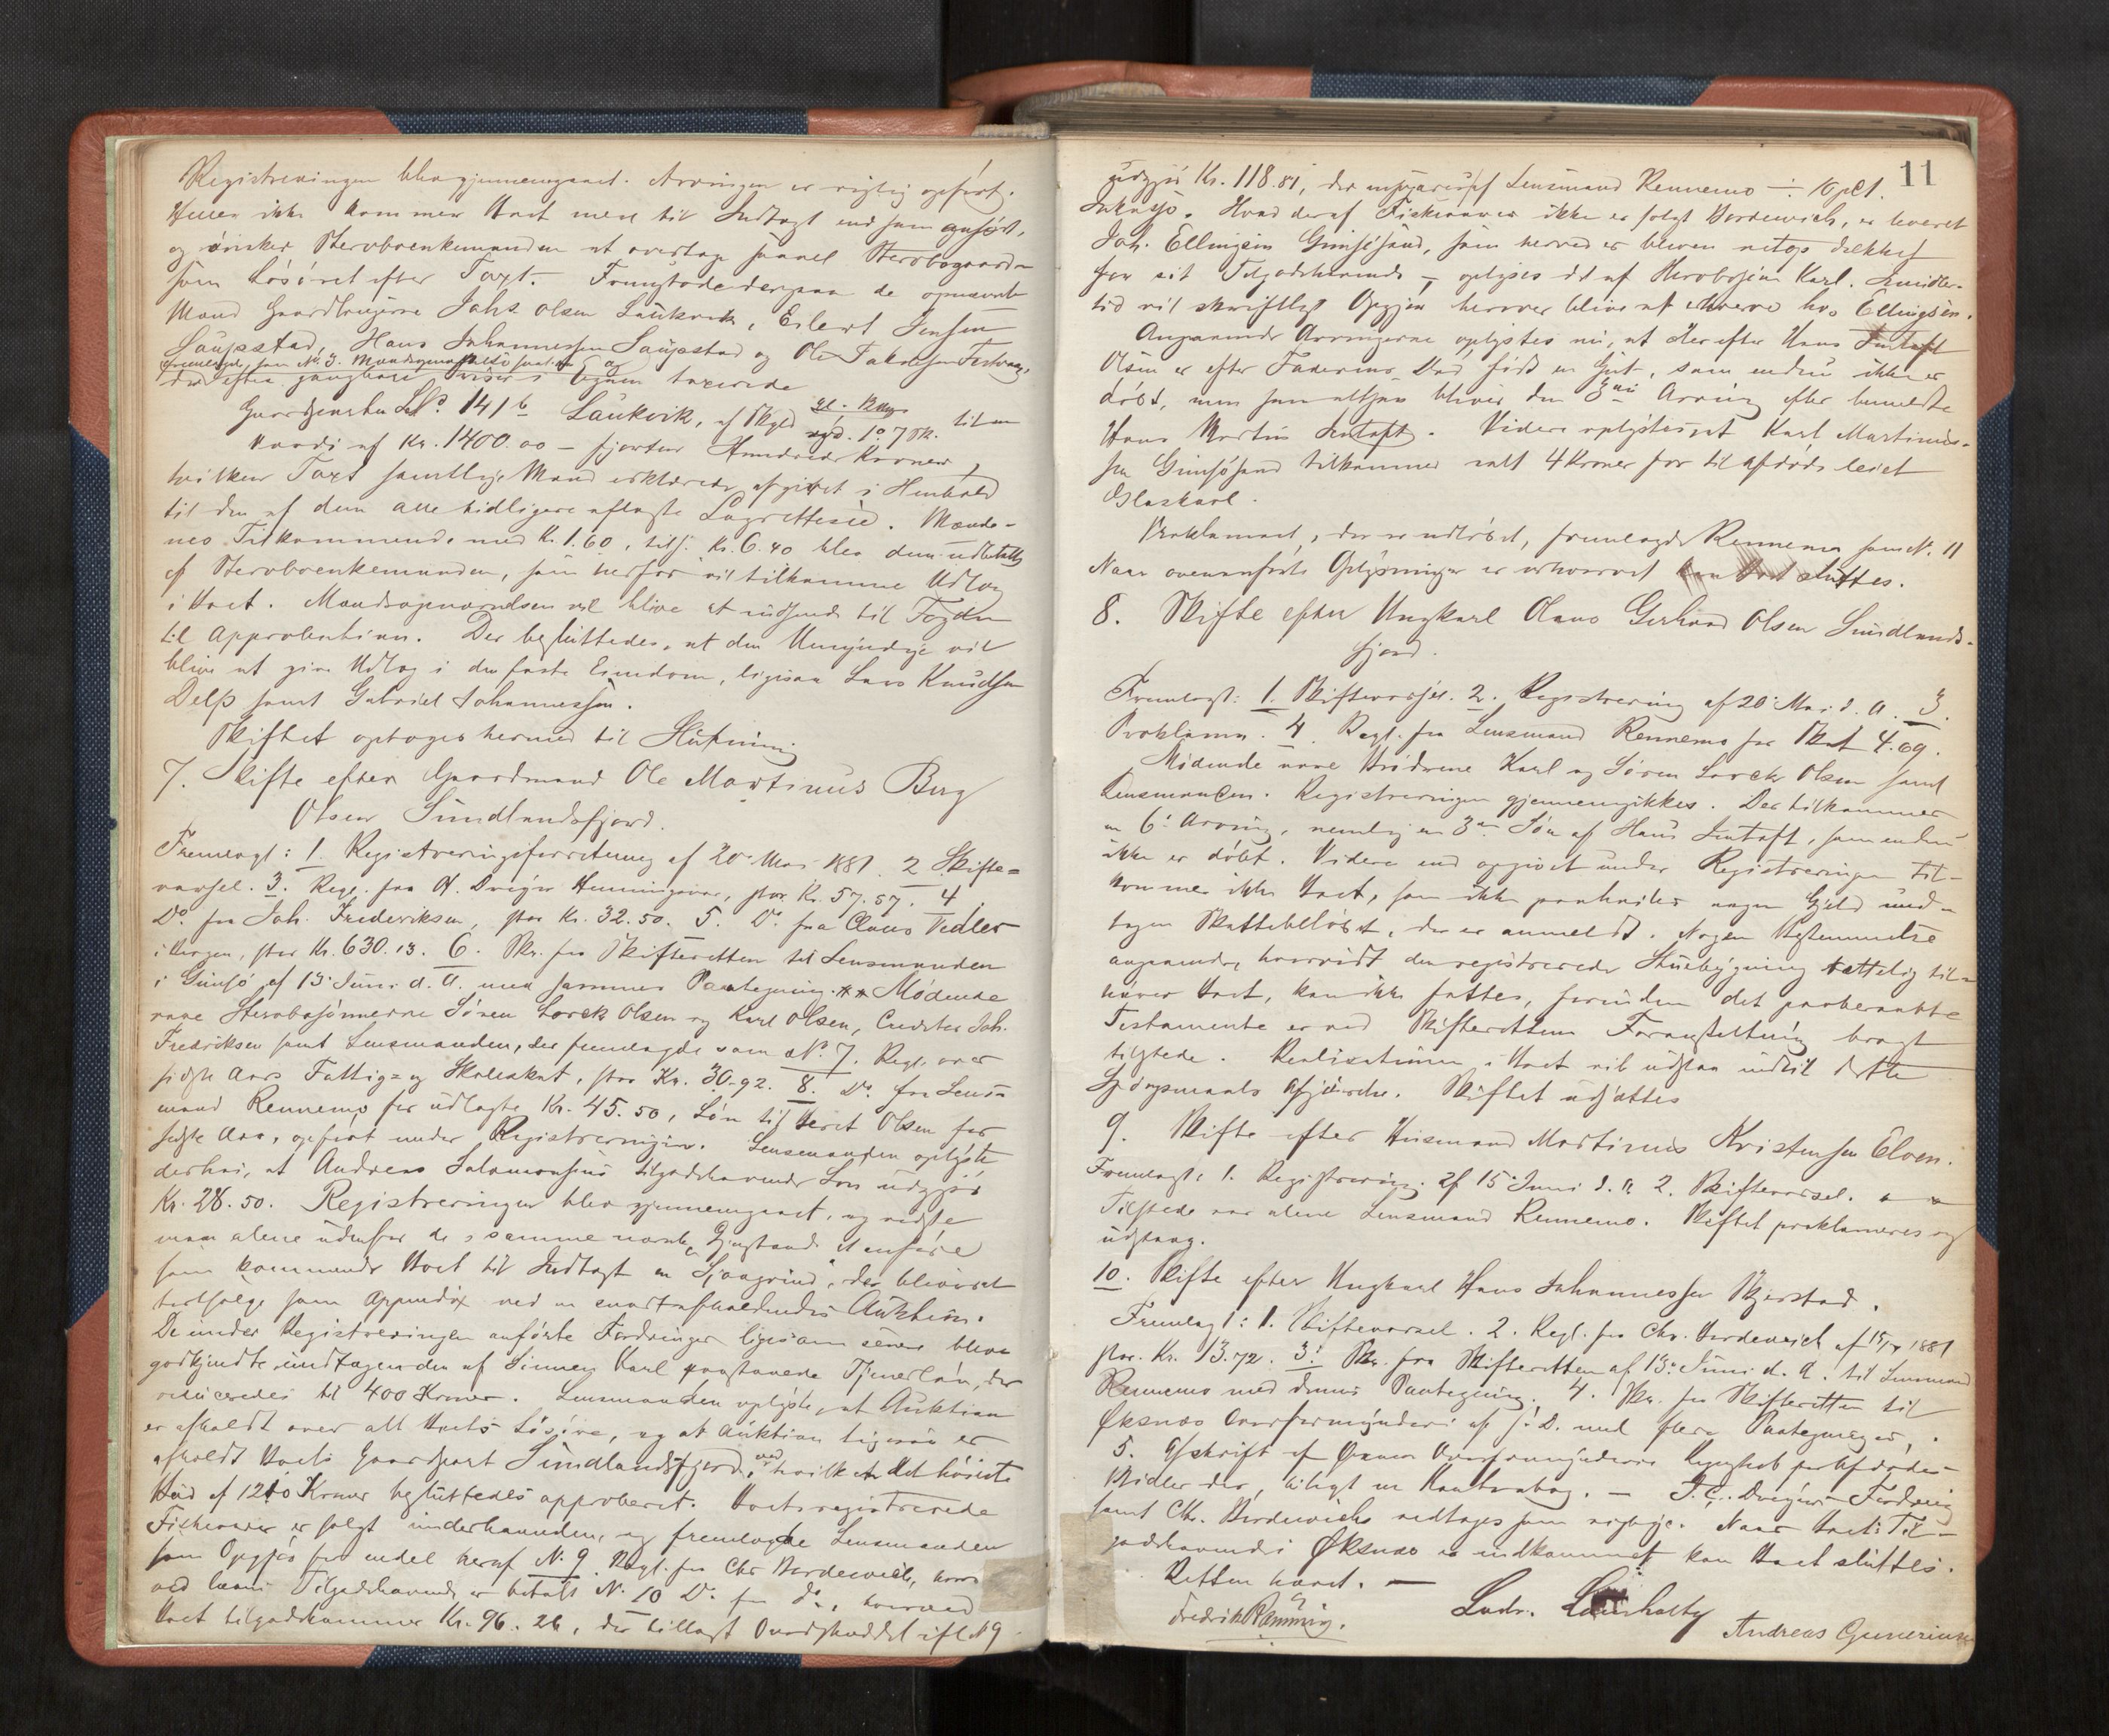 Registreringen blev gjennemgaaet. Arvingen er rigtig opført.
ikke kommer Boet mere til Indtægt end som anført,
og ønsker Stervboenkemanden at overtage saavel Stervbogaarden
som Løsøret efter Taxt. Fremstod derpaa de opnævnte
Mænd Gaardbrugerne Johs Olsen Laukvik, Eilert Jensen
Saupstad, Hans Johannessen Saupstad og Ole
fremlagde som No 3. Mandsopnævnelse og
der efter Egnen taxerede
Gaardparten 141b Laukvik, af Skyld 1 7 til en
Værdi af Kr. 1400.00 – fjorten Hundrede Kroner,
hvilken Taxt samtlige Mænd erklærede afgivet i Henhold
til den af dem alle tidligere aflagte Lagretteseed. Mænde-
nes Tilkommende med K. 1.60, tils. Kr. 6.40 blev dem udbetalt
af Stervboenkemanden, som herfor vil tilkomme Udlæg
i Boet. Mandsopnævnelsen vil blive at indsende til Fogden
til Approbation. Der besluttedes, at den Umyndige vil
blive at give Udlæg i den faste Eiendom, ligesaa Lars Knudsen
Delp samt Gabriel Johannessen.
Skiftet optoges hermed til Slutning
7. Skifte efter Gaardmand Ole Martinus Berg
Olsen Sundlandsfjord.
Fremlagt: 1. Registreringsforretning af 20 Mai 1881. 2 Skifte-
varsel. 3. Regl. fra Henningsvær, stor Kr. 57.57. 4.
Do fra Joh. Frederiksen, stor Kr. 32.50. 5. Do fra Claus Vedler
i Bergen, stor Kr. 630.13. 6. Skr. fra Skifteretten til Lensmanden
i Gimsø af 13 Juni d. A. med sammes Paategning. Mødende
vare Stervbosønnerne Søren Lorck Olsen og Karl Olsen, Creditor Joh.
Fredriksen samt Lensmanden, der fremlagde som No. 7. Regl. over
sidste Aars Fattig- og Skoleskat, stor Kr. 30.92. 8. Do fra Lens-
mand Rennemo for udlagte Kr. 45.50, Løn til Beret Olsen for
sidste Aar, opført under Registreringen. Lensmanden oplyste
derhos, at Andreas Salamonsens tilgodehavende Løn udgjør
Kr. 28.50. Registreringen blev gjennemgaaet, og vidste
man alene udenfor de i samme nævnte Gjenstande at anføre
som kommende Boet til Indtægt en "Sjøagrind", der blev
bortsolgt som Appendix ved en snart afholdendes Auktion.
De under Registreringen anførte Fordringer ligesom senere bleve
godkjendte undtagen den af Sønnen Karl paastaaede Tjenerløn, der
reduceredes til 400 Kroner. Lensmanden oplyste, at Auktion
er afholdt over alt Boets Løsøre, og at Auktion ligesaa er
afholdt Boets Gaardpart Sundlandsfjord, ved hvilken det høieste
Bud af 1210 Kroner besluttedes approberet. Boets registrerede
Fiskevarer er solgt underhaanden, og fremlagde Lensmanden
som Opgjør for endel heraf N. 9. Regl. fra Chr. Berdewich, hvor
ved hans Tilgodehavende er betalt N. 10 Do fra do, hvorved
Boet tilgodekommer Kr. 96.26, der tillagt Overskuddet ifl. N 9
11
udgjør Kr. 118.81, der af Lensmand Rennemo
Inkasso. Hvad der af Fiskevarer ikke er solgt Berdewich, er leveret
Joh. Ellingsen Gimsøsand, som herved er bleven netop dækket
for sit Tilgodehavende, oplyses det af Stervbosøn Karl. Imidler-
tid vil skriftligt Opgjør herover blive at erhverve hos Ellingsen.
Angaaende Arvingerne oplystes nu, at der efter Hans
Olsen er efter Faderens Død født en Gut, som endnu ikke er
døbt, men som altsaa bliver den 3die Arving efter bemeldte
Hans Martin. Videre oplystes, at Karl Martinus-
sen Gimsøsand tilkommer 4 Kroner for til afdøde leiet
Proklamaet, der er udløbet, fremlagde Rennemo som N. 11
Naar ovenanførte Oplysninger er erhvervet kan Boet sluttes.
8. Skifte efter Ungkarl Olaus Gerhard Olsen Sundlands-
fjord.
Fremlagt: 1. Skiftevarsel. 2. Registrering af 20 Mai d. A. 3.
Proklama. 4. Regl. fra Lensmand Rennemo for Skat 4.69.
Mødende vare Brødrene Karl og Søren Lorck Olsen samt
Lensmanden. Registreringen gjennemgikkes. Der tilkommer
en 6te Arving, nemlig en 3die Søn af Hans, som endnu
ikke er døbt. Videre end opgivet under Registreringen til-
kommer ikke Boet, som ikke paahviler nogen Gjæld und-
tagen Skattebeløbet, der er anmeldt. Nogen Bestemmelse
angaaende, hvorvidt den registrerede Stuebygning rettelig til-
hører Boet, kan ikke fattes, forinden det paaberaabte
Testamente er ved Skifterettens Foranstaltning bragt
tilstede. Realisationen i Boet vil udstaa indtil dette
Spørgsmaals Afgjørelse. Skiftet udsættes
9. Skifte efter Husmand Martinus Kristensen Elven.
Fremlagt: 1. Registrering af 15 Juni d. A. 2. Skiftevarsel.
Tilstede var alene Lensmand Rennemo. Skiftet proklameres og
udstaar.
10. Skifte efter Ungkarl Hans Johannessen Skjerstad.
Fremlagt: 1. Skiftevarsel. 2. Regl. fra Chr. Berdewich af 1881
stor Kr. 13.72. 3. Skr. fra Skifteretten af 13 Juni d. A. til Lensmand
Rennemo med dennes Paategning. 4. Skr. fra Skifteretten til
Øksnæs Overformynderi af s. D. med flere Paategninger,
5. Afskrift af Øksnes Overformynderis Regnskab for Afdødes
Midler der, bilagt en Kontrabog. – Fordring
samt Chr. Berdewichs vedtages som rigtige. Naar Boets Til-
godehavende i Øksnæs er indkommet kan Boet sluttes.
Retten hævet. –
Fredrik Ramming.
Andreas Gunerius